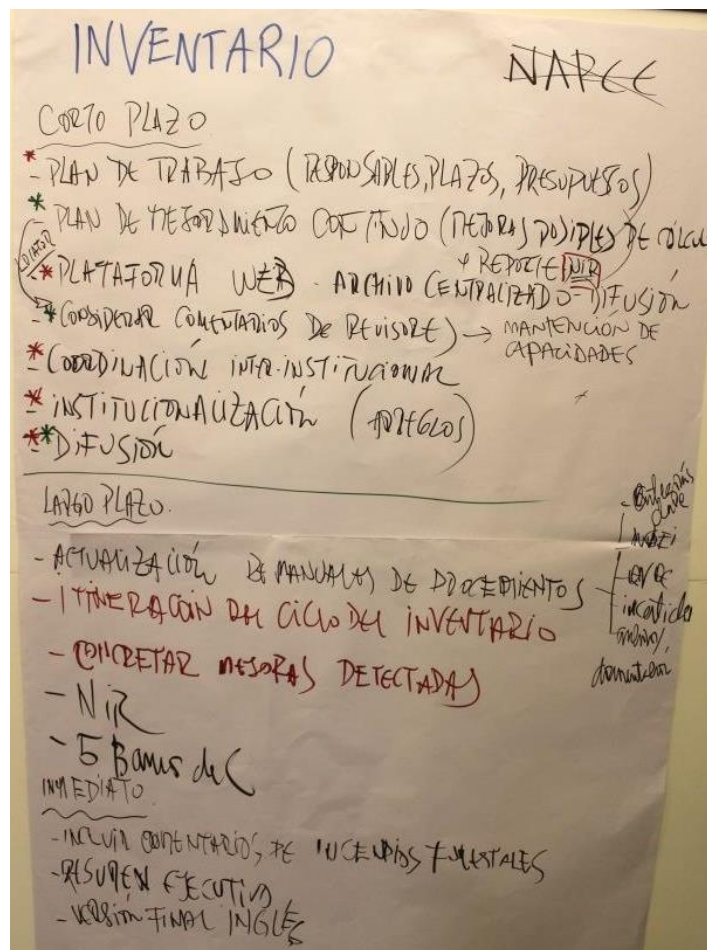 INVENTARIO
NAPCC
CORTO PLAZO
- PLAN DE TRABAJO (RESPONSABLES, PLAZOS, PRESUPUESTOS)
PLAN DE MEJORAMIENTO CONTINUO (MEJORAS POSIBLES DE CÁLCULO
Y REPORTE NIR
- PLATAFORMA WEB - ARCHIVO CENTRALIZADO - DIFUSIÓN
- CONSIDERAR COMENTARIOS DE REVISORES → MANTENCIÓN DE
CAPACIDADES
- COORDINACIÓN INTER-INSTITUCIONAL
- INSTITUCIONALIZACIÓN (ARREGLOS)
- DIFUSIÓN
LARGO PLAZO.
- ACTUALIZACIÓN DE MANUALES DE PROCEDIMIENTOS
- ITINERACIÓN DEL CICLO DEL INVENTARIO
- CONCRETAR MEJORAS DETECTADAS
- NIR
- 5
de C
INMEDIATO
- INCLUIR COMENTARIOS, DE INCENDIOS FORESTALES
- RESUMEN EJECUTIVO
- VERSIÓN FINAL INGLES